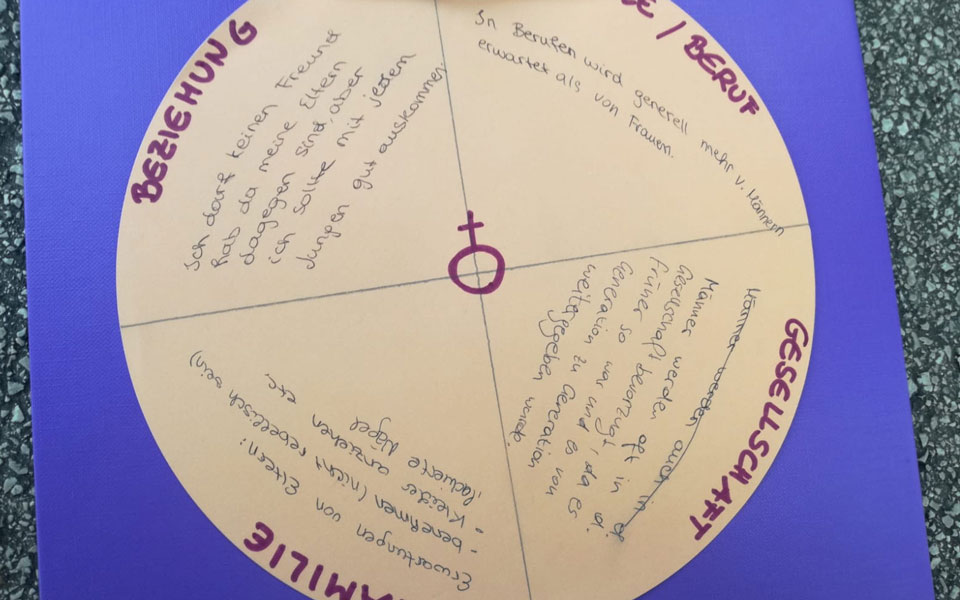 BEZIEHUNG
Ich darf keinen Freund
hab da meine Eltern
dagegen sind, aber
ich sollte mit jedem
Jungen gut auskommen.
E / BERUF
In Berufen wird generell mehr v. Männern
erwartet als von Frauen.
GESELLSCHAFT
Männer werden auch in d
Männer werden oft in d.
Gesellschaft bevorzugt, da es
früher so war und es von
Generation zu Generation
weitergegeben wurde
AMILIE
Erwartungen von Eltern:
- benehmen (nicht rebellisch sein)
- Kleider anziehen etc.
lackierte Nägel